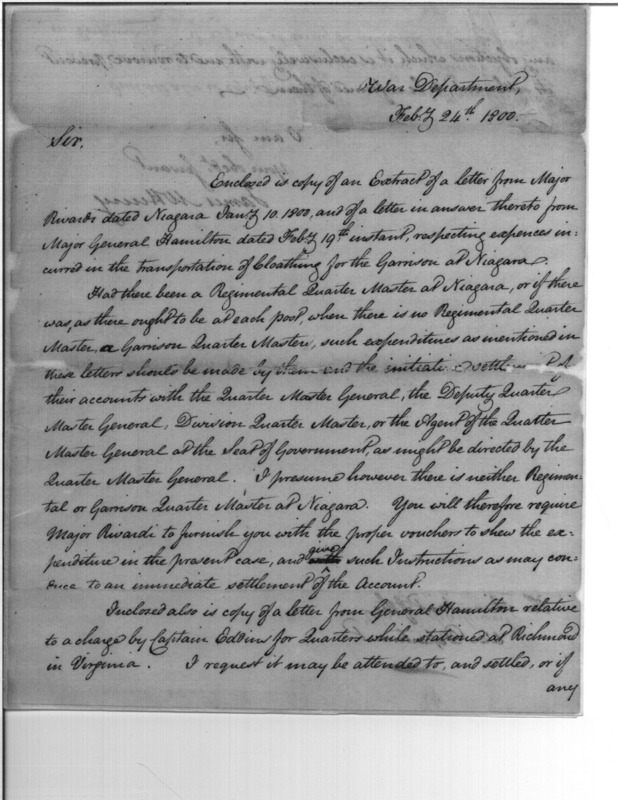 War Department,
Feby 24th 1800.
Sir,
Enclosed is copy of an Extract of a letter from Major
Rivardi dated Niagara Jany 10. 1800, and of a letter in answer thereto from
Major General Hamilton dated Feby 19th instant, respecting expences in=
curred in the transportation of Cloathing for the Garrison at Niagara.
Had there been a Regimental Quarter Master at Niagara, or if there
was, as there ought to be at each post, when there is no Regimental Quarter
Master, a Garrison Quarter Master, such expenditures as mentioned in
these letters should be made by them and the initiate settl
their accounts with the Quarter Master General, the Deputy Quarter
Master General, Division Quarter Master, or the Agent of the Quarter
Master General at the Seat of Government, as might be directed by the
Quarter Master General. I presume however there is neither Regimen=
tal or Garrison Quarter Master at Niagara. You will therefore require
Major Rivardi to furnish you with the proper vouchers to shew the ex=
penditure in the present case, and give such Instructions as may con=
duce to an immediate settlement of the Account.
Inclosed also is copy of a letter from General Hamilton relative
to a charge by Captain Eddins for Quarters while stationed at Richmond
in Virginia. I request it may be attended to, and settled, or if
any